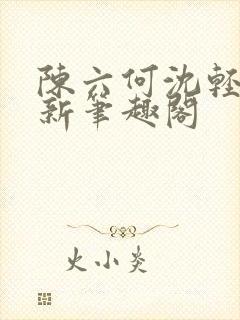 陳六何沈輕
新筆趣閣
火小炎